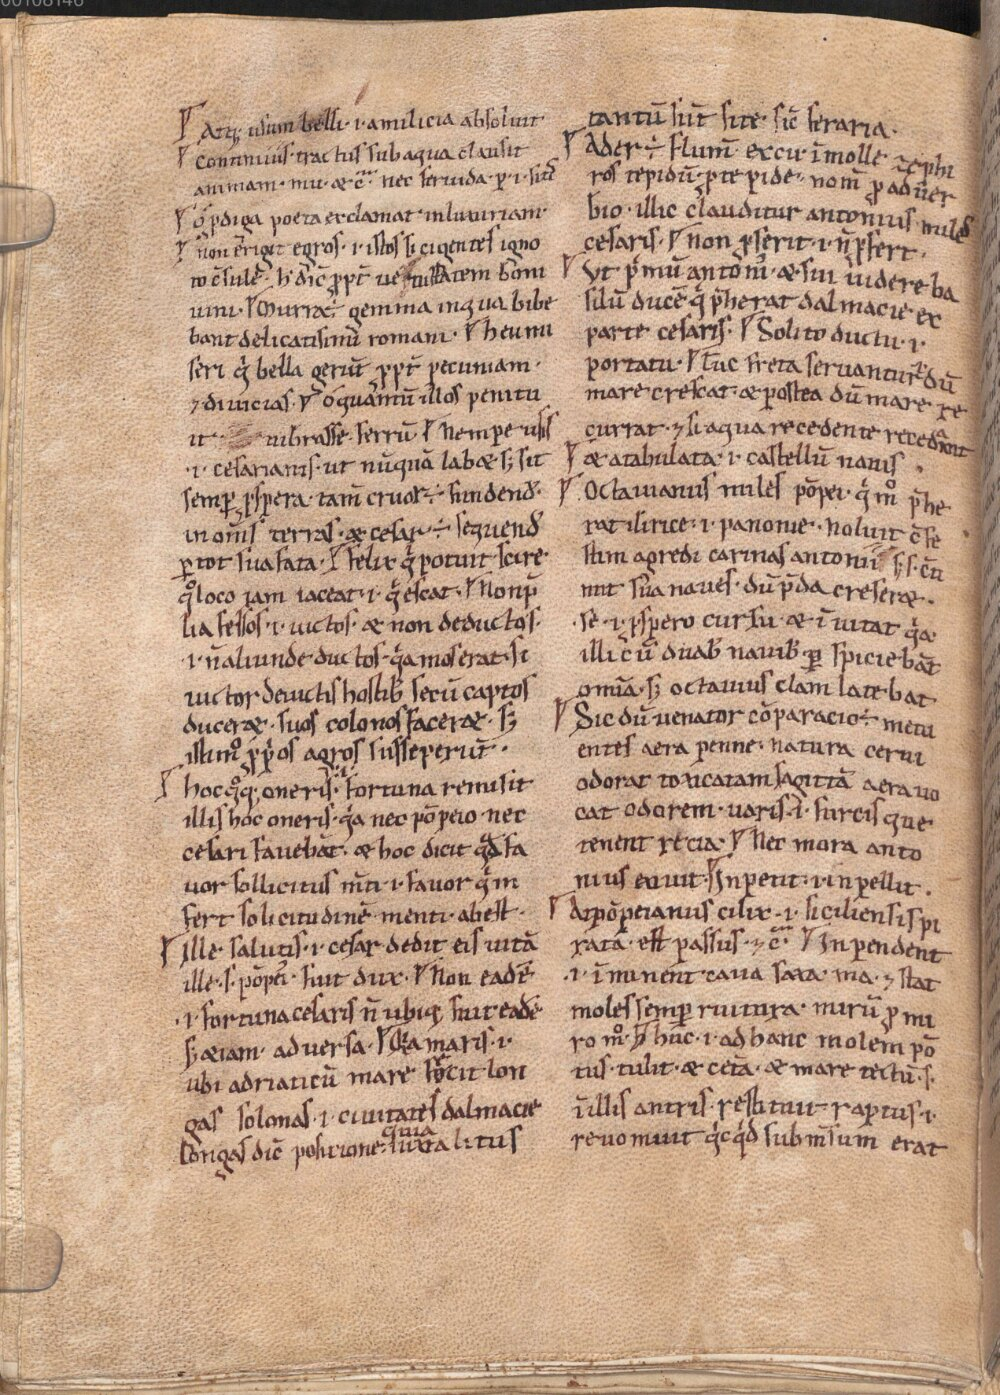 00108146
Atq; usum belli · i · amilicia absoluit
Continuus · tractus sub aqua clausit
animam · nec feruida · p · i · siti
O pdiga poeta exclamat inluxuriam ·
non erigit egros · i · istos si egentes igno
to c̄sule · h̄ dic̄ ꝓpt̄ uetustatem boni
uini · Murra · ÷ gemma inqua bibe
bant delicatisimi romani · heu mi
seri q̄ bella gerūt ꝓpt̄ pecuniam ·
⁊ diuicias · O quantū illos penitu
it · uibrasse · ferrū Nempe usis
· i · cesarianis · ut nūquā labæ s; sit
semꝑ ꝓspera · tam̄ cruor ÷ fundend̄ ·
in om̄s terras · æ cesar ÷ sequend̄
ꝑ tot sua fata · Felix q̄ potuit scire ·
q̊ loco iam iaceat · i · q̄escat · Non p̄
lia fessos · i · uictos · æ non deductos ·
· i · n̄ aliunde ductos · q̄a mos erat · si
uictor deuictis hostib; secū captos
duceræ · suos colonos faceræ · s;
isti m̊ ꝓp̄os agros susseperūt ·
hoc q̊q; oneris · i · fortuna remisit
illis hoc oneris · q̄a nec pōpeio nec
cesari fauebāt · æ hoc dicit q̄d fa
uor sollicitus m̄ti · i · fauor q̄ in
fert solicitudinē menti · abest ·
Ille · salutis · i · cesar dedit eis uitā
ille · s · pōpei fuit dux · Non eadē
· i · fortuna cesaris n̄ ubiq; fuit eadē
s; æiam · aduersa · Qa maris · i ·
ubi adriaticū mare focit lon
gas solonas · i · ciuitates dalmacie
Longas dic̄ positione · quia iuxta litus
tantū sūt site · sic̄ feraria ·
Ader ÷ flum̄ · excit̄ ī molle zephi
ros tepidū · ꝓ tepide · nom̄ ꝓ aduer
bio · illic clauditur antonius miles
cesaris · non ꝓserit · i · n̄ ꝓfert ·
Vt p̄mū antoni · æ sui uidere ba
silū ducē q̄ p̄herat dalmacie ex
parte cesaris · Solito ductu · i ·
portatu · Tūc freta seruantur · dū
mare crescat · æ postea dū mare · re
currat · ⁊ si aqua recedente recedant
æ atabulata · i · castellū nauis ·
Octauianus miles pōpei · q̄ m̊ p̄he
rat ilirice · i · panonie · noluit c̄fe
stim agredi carinas antonii s; s · c̄ti
nuit sua naues · dū p̄da creseræ ·
· se · i · ꝓspero cursu · æ ī uitat q̄a
illi cū duab; nauib; ꝑ spiciebāt
omīa · s; octauius clam latebat
Sic dū uenator cōparacio ÷ metu
entes aera penne · natura cerui
odorat toxicatam sagittā aera uo
cat odorem · uaris · i · furcis que
tenent recia · Nec mora anto
nius exiuit · Inpetit · i · inpellit ·
At pōpeianus cilix · i · siciliensis pi
rata · est passus · ⁊ c̄ Inpendent
· i · īminent caua saxa · ma · ⁊ stat
moles semꝑ ruitura · mirū ꝓ mi
ro m̊ · huc · i · ad hanc molem pō
tus · tulit · æ cetā · æ mare tectū · s ·
ī illis antris · restituit raptus · i ·
reuomuit q̄cq̄d submsum erat